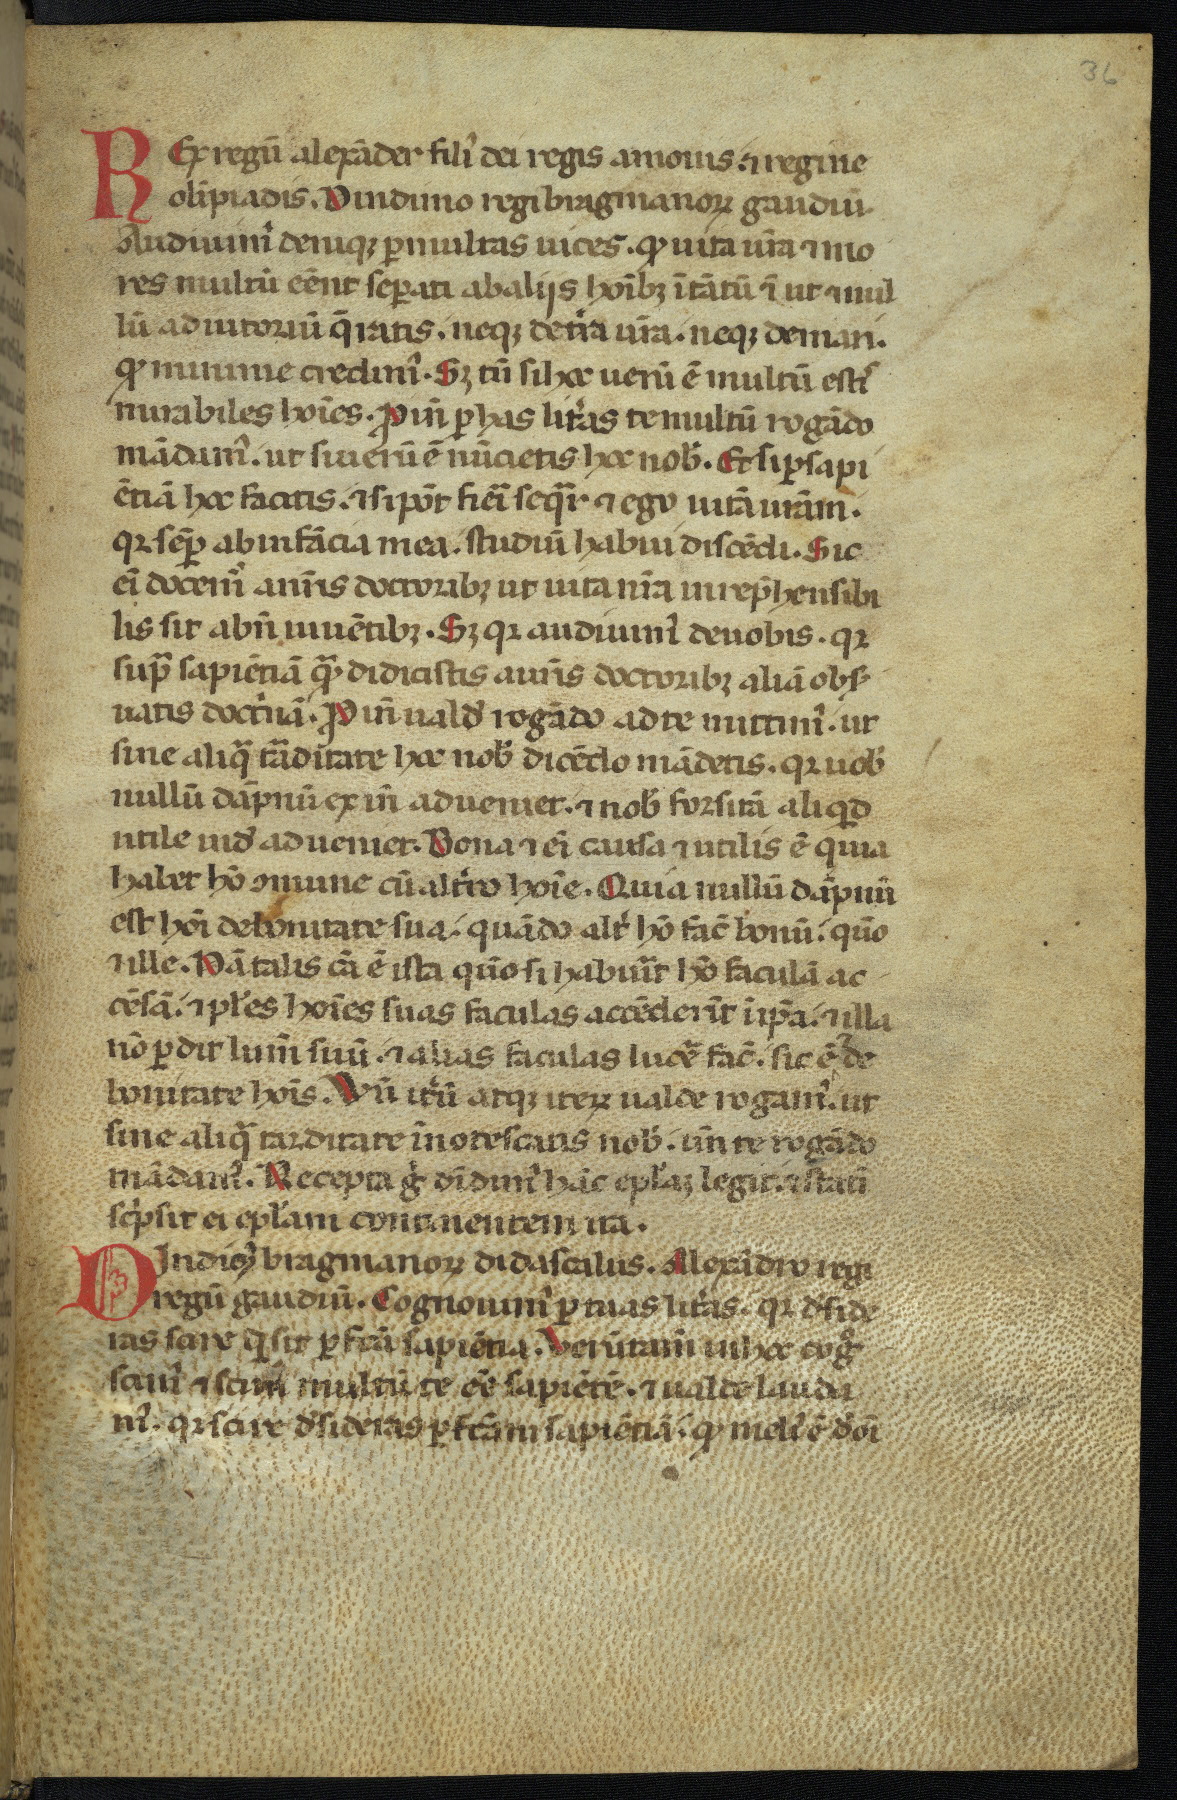 36
REx regū alexāder fili᷒ dei regis amonis. ⁊ regine
olīpiadis. Dindimo regi bragmanoꝝ gaudiū.
Audiuim᷒ deniqꝫ ꝑmultas uices. ꝙ uita ur̄a ⁊ mo
res multū eēnt seꝑati ab alijs hoīb​ꝫ ītātū ī ut ⁊ nul
lū adiutoriū q̄ratis. neqꝫ de tr̄ra ur̄a. neqꝫ de mari.
ꝙ minime credim᷒. Sꝫ tn̄ si hoc uerū ē multū esti᷒
mirabiles hoīes. Pīn ꝑ has litr̄as te multū rogādo
mādam᷒. ut si uerū ē nūcietis hoc nob̄. Et si ꝑ sapi
ētiā hoc facitis. ⁊ si pōt fieī seq̄r ⁊ ego uitā urām.
qꝛ sēꝑ ab infācia mea. studiū habui discēdi. Sic
eī docem᷒ a nr̄is doctorib​ꝫ ut uita nr̄a inrep̄hensibi
lis sit ab oī uiuētib​ꝫ. Sꝫ qꝛ audiuim᷒ de uobis. qꝛ
supᵃ sapiētiā quᵃ didicistis a nr̄is doctorib​ꝫ aliā obſ
uatis doct'nā. Pīn uald̄ rogādo ad te mittim᷒. ut
sine aliqᵃ tᵃditate hoc nob̄ dicēdo mādetis. qꝛ uob̄
nullū dāpnū ex īn adueniet. ⁊ nob̄ forsitā aliqͥd
utile īnd̄ adueniet. Bona ⁊ eī causa ⁊ utilis ē quia
habet hō ꝯmune cū alt'ro hoīe. Quia nullū dāpnū
est hoī de bonitate sua. quādo alt' hō fac̄ bonū. quō
⁊ ille. Nā talis cā ē ista quō si habūit hō faculā ac
cēsā. ⁊ pl̄es hoīes suas faculas accēderīt ī ip̄a. ⁊ illa
nō ꝑdit lum̄ suū. ⁊ alias faculas lucē fac̄. sic ē de
bonitate hoīs. Vn̄ it'ū atqꝫ iteꝝ ualde rogam᷒. ut
sine aliqᵃ tarditate īnotescatis nob̄. un̄ te rogādo
mādam᷒. Recepta gͦ dīdim᷒ hāc epl̄aꝫ legit. ⁊ statī
scͥpsit ei epl̄am continentem ita.
DIndim᷒ bragmanoꝝ didascalus. Alexādro regi
regū gaudiū. Cognouim᷒ ꝑ tuas lit'as. qꝛ d̄side
ras scire q̄ sit ꝑfcā sapiētia. Verūtam̄ in hoc cogͦ
scim᷒ ⁊ scim᷒ multū te eē sapiētē. ⁊ ualde lauda
m᷒. qꝛ scire d̄sideras ꝑfcām sapiētiā. ꝙ meli᷒ ē d̄ oī